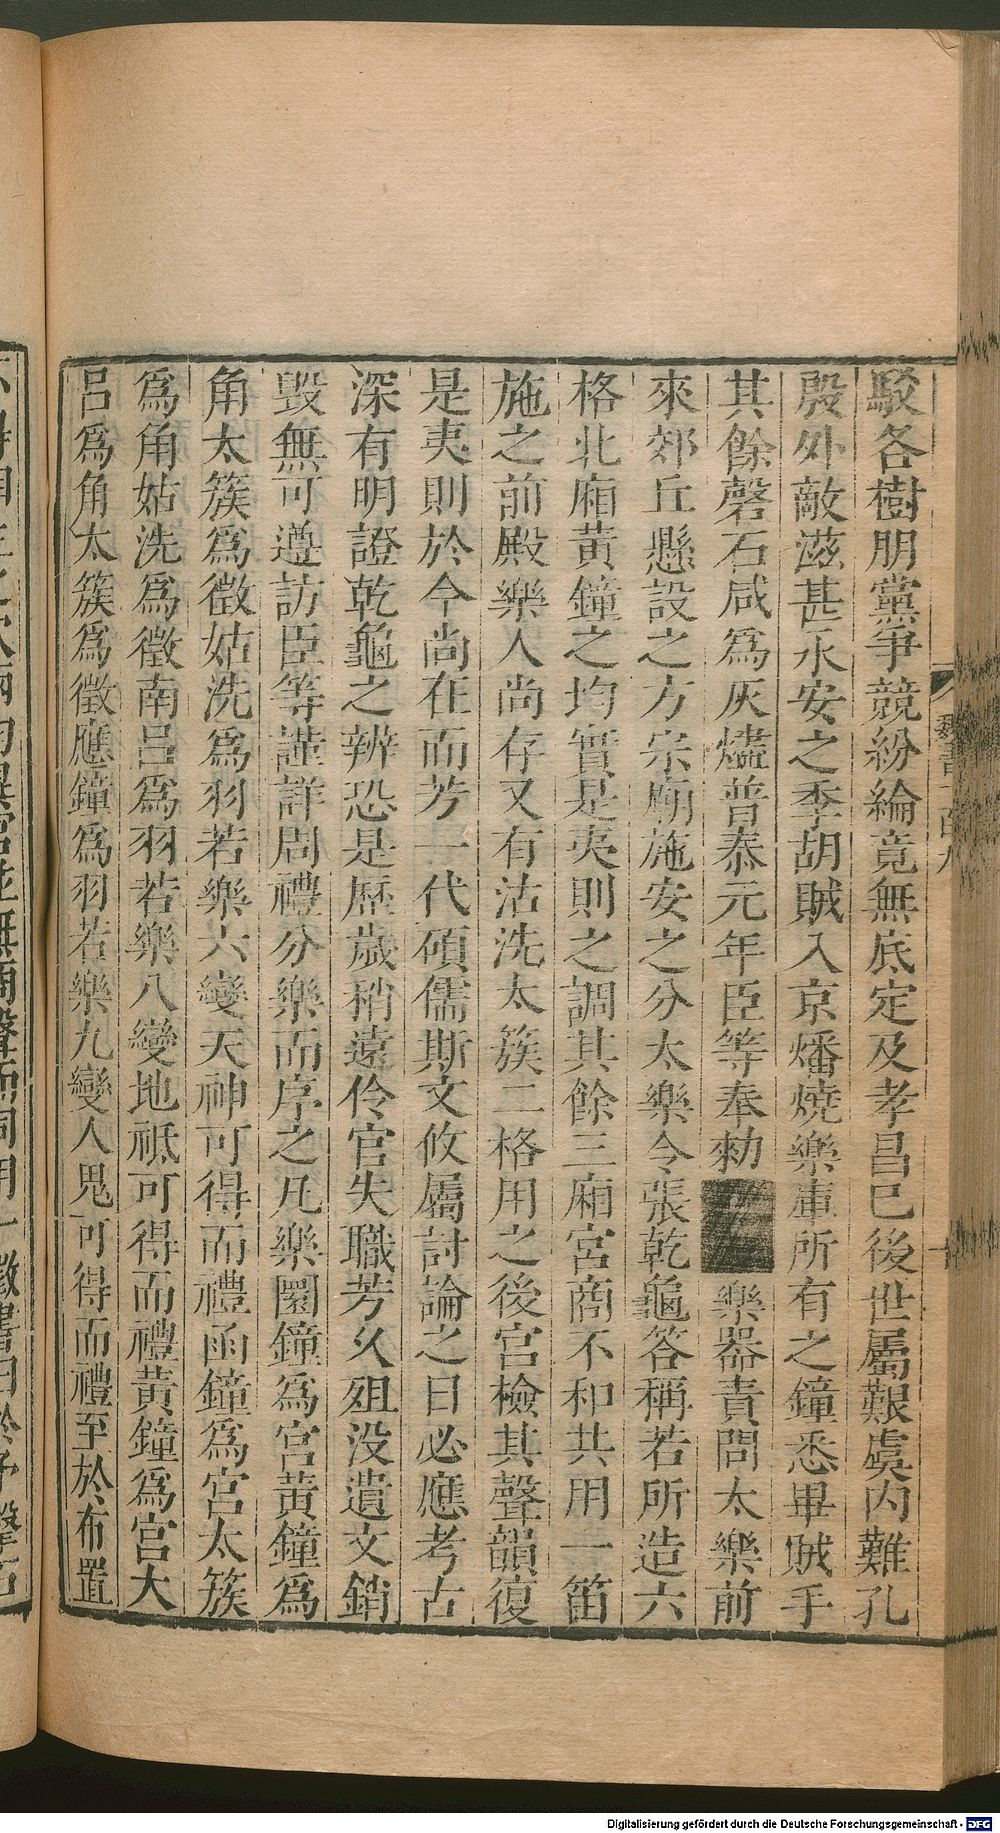 駁各樹朋黨爭競紛綸竟無底定及孝昌已後世屬艱虞内難孔
殷外敵滋甚永安之季胡賊入京燔燒樂庫所有之鐘悉畢賊手
其餘磬石咸爲灰燼普泰元年臣等奉勑樂器責問太樂前
來郊丘懸設之方宗廟施安之分太樂令張乾龜答稱若所造六
格北廂黃鐘之均實是夷則之調其餘三廂宮商不和共用一笛
施之前殿樂人尚存又有沽洗太簇二格用之後宮檢其聲韻復
是夷則於今尚在而芳一代碩儒斯文攸屬討論之日必應考古
深有明證乾龜之辨恐是歷歲稍遠伶官失職芳久殂没遺文銷
毁無可遵訪臣等謹詳周禮分樂而序之凡樂圜鐘爲宮黃鐘爲
角太簇爲徵姑洗爲羽若樂六變天神可得而禮函鐘爲宮太簇
爲角姑洗爲徵南呂爲羽若樂八變地祇可得而禮黃鐘爲宮大
呂爲角太簇爲徵應鐘爲羽若樂九變人鬼可得而禮至於布置
Digitalisierung gefördert durch die Deutsche Forschungsgemeinschaft - DFG